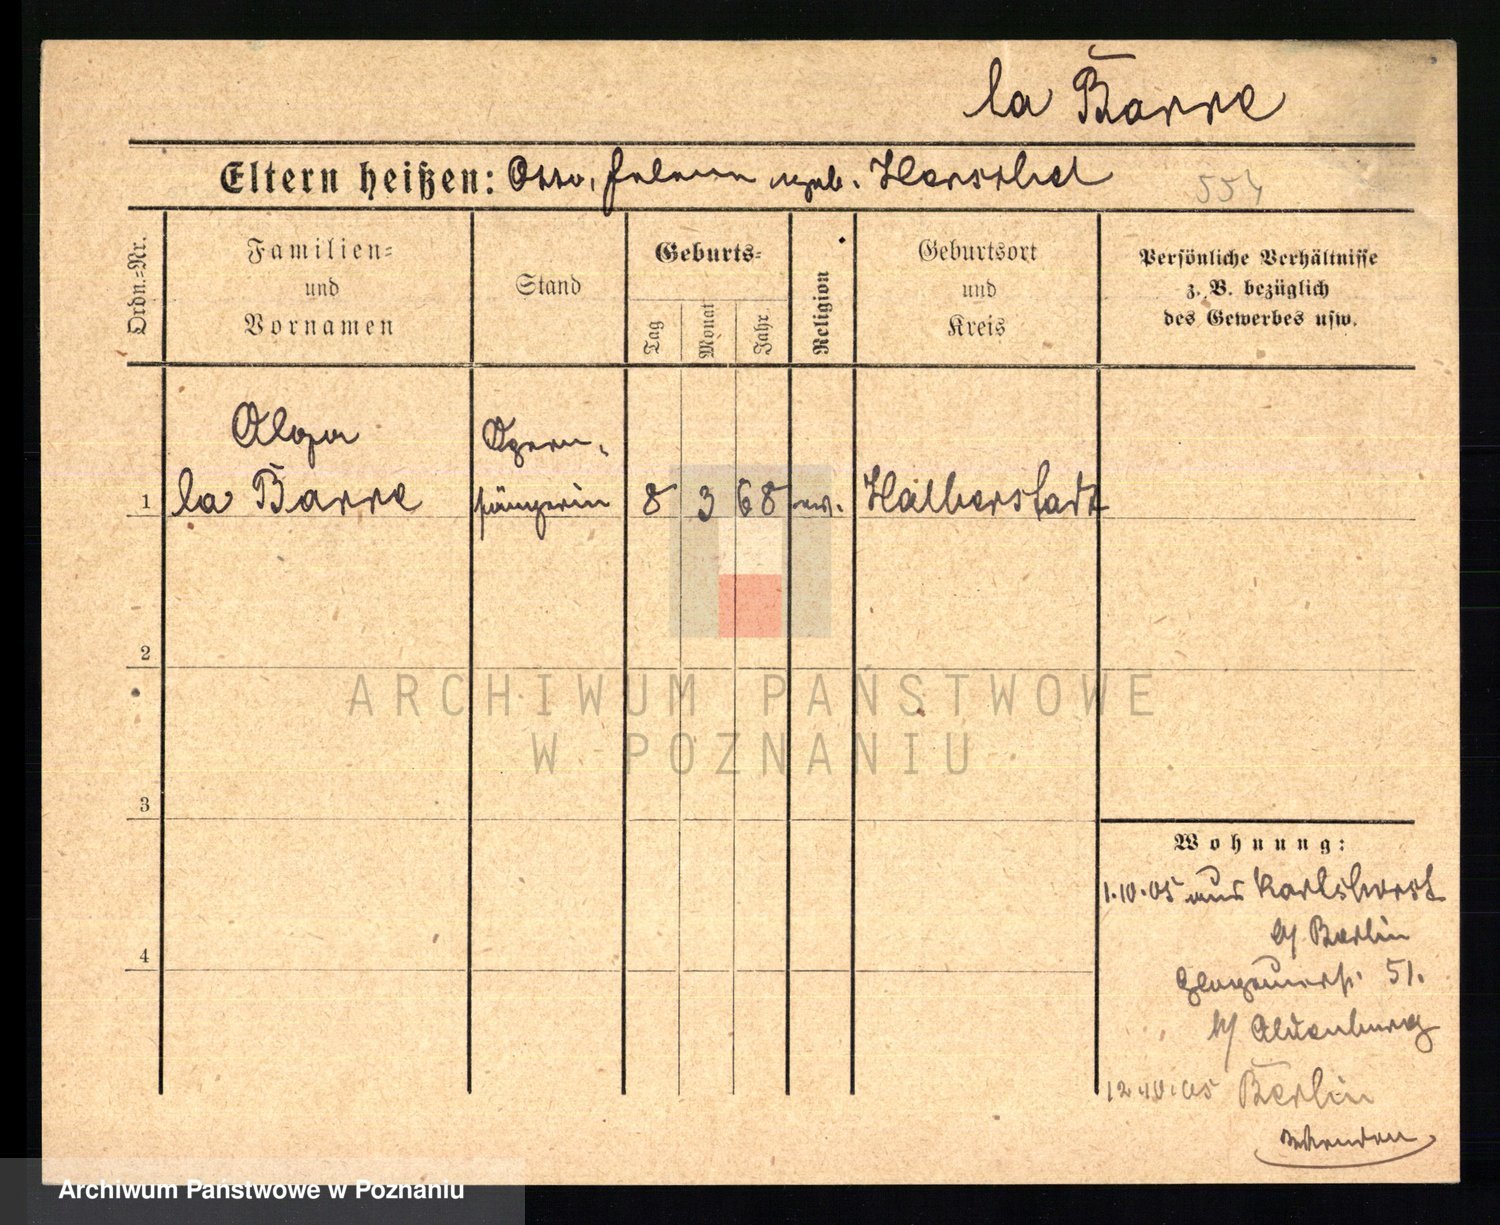 la Barre
Eltern heißen: Otto, Helene geb. Herschel
554
Ordn.=Nr.
Familien=
und
Vornamen
Stand
Geburts=
Tag
Monat
Jahr
Religion
Geburtsort
und
Kreis
Persönliche Verhältnisse
z. B. bezüglich
des Gewerbes usw.
Olga Opern-
1 la Barre sängerin 8 3 68 ev. Halberstadt
2
ARCHIWUM PAŃSTWOWE
W POZNANIU
3
Wohnung:
1.10.05 aus Karlshorst
b/ Berlin
Glogauerstr. 51.
b/ Altenburg
4
12.10.05 Berlin
Archiwum Państwowe w Poznaniu